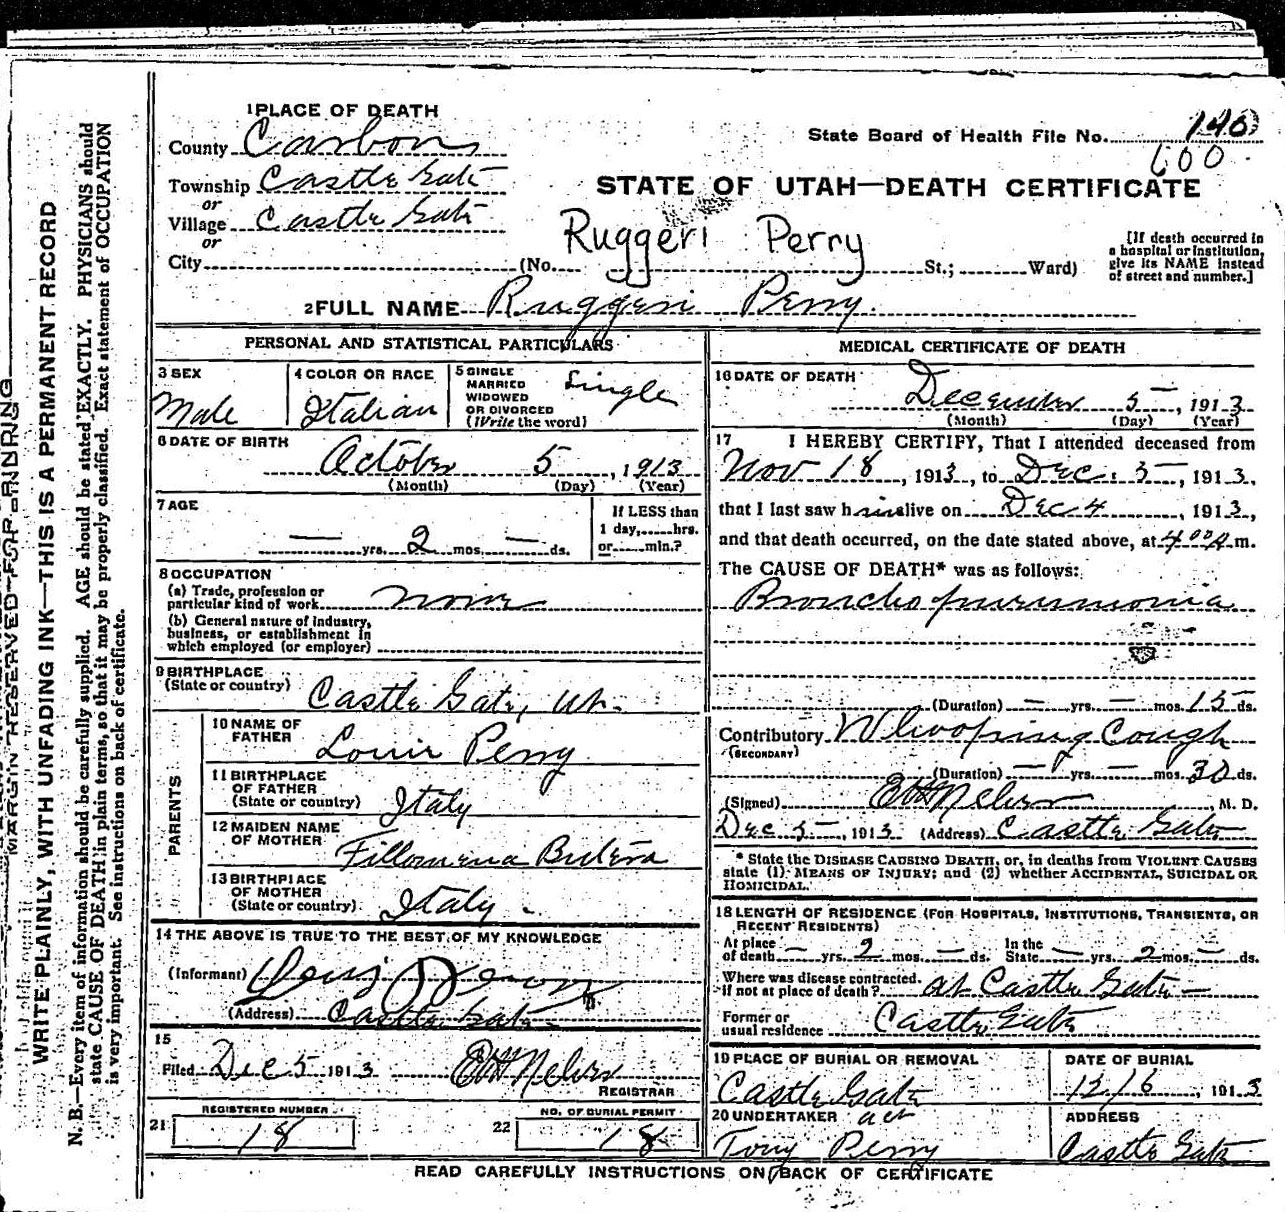 1 PLACE OF DEATH
County Carbon
State Board of Health File No. 146
600
Township Castle Gate
STATE OF UTAH—DEATH CERTIFICATE
or
Village Castle Gate
Ruggeri Perry
or
City (No. St.; Ward)
[If death occurred in a hospital or institution, give its NAME instead of street and number.]
2 FULL NAME Ruggeri Perry
PERSONAL AND STATISTICAL PARTICULARS
3 SEX
Male
4 COLOR OR RACE
Italian
5 SINGLE MARRIED WIDOWED OR DIVORCED (Write the word)
Single
6 DATE OF BIRTH
October 5, 1913
(Month) (Day) (Year)
7 AGE
— yrs. 2 mos. — ds.
If LESS than 1 day, hrs. or min.?
8 OCCUPATION
(a) Trade, profession or particular kind of work None
(b) General nature of industry, business, or establishment in which employed (or employer)
9 BIRTHPLACE
(State or country) Castle Gate, Ut.
PARENTS
10 NAME OF FATHER
Louis Perry
11 BIRTHPLACE OF FATHER (State or country)
Italy
12 MAIDEN NAME OF MOTHER
Fillomena
13 BIRTHPLACE OF MOTHER (State or country)
Italy.
14 THE ABOVE IS TRUE TO THE BEST OF MY KNOWLEDGE
(Informant)
(Address) Castle Gate
15
Filed Dec 5 1913
REGISTRAR
REGISTERED NUMBER
21 18
NO. OF BURIAL PERMIT
22 18
MEDICAL CERTIFICATE OF DEATH
16 DATE OF DEATH
December 5, 1913
(Month) (Day) (Year)
17 I HEREBY CERTIFY, That I attended deceased from
Nov 18, 1913, to Dec. 5, 1913,
that I last saw him alive on Dec 4, 1913,
and that death occurred, on the date stated above, at 4 00 A m.
The CAUSE OF DEATH* was as follows:
Broncho pneumonia
(Duration) — yrs. — mos. 15 ds.
Contributory Whooping Cough
(SECONDARY)
(Duration) — yrs. — mos. 30 ds.
(Signed) , M. D.
Dec 5, 1913 (Address) Castle Gate
* State the DISEASE CAUSING DEATH, or, in deaths from VIOLENT CAUSES
state (1) MEANS OF INJURY; and (2) whether ACCIDENTAL, SUICIDAL OR
HOMICIDAL.
18 LENGTH OF RESIDENCE (FOR HOSPITALS, INSTITUTIONS, TRANSIENTS, OR
RECENT RESIDENTS)
At place of death — yrs. 2 mos. — ds. In the State — yrs. 2 mos. — ds.
Where was disease contracted. If not at place of death? at Castle Gate —
Former or usual residence Castle Gate
19 PLACE OF BURIAL OR REMOVAL
Castle Gate
DATE OF BURIAL
12/6, 1913
20 UNDERTAKER act
Tony Perry
ADDRESS
Castle Gate
READ CAREFULLY INSTRUCTIONS ON BACK OF CERTIFICATE
MARGIN RESERVED FOR BINDING
WRITE PLAINLY, WITH UNFADING INK—THIS IS A PERMANENT RECORD
N. B.—Every item of information should be carefully supplied. AGE should be stated EXACTLY. PHYSICIANS should
state CAUSE OF DEATH in plain terms, so that it may be properly classified. Exact statement of OCCUPATION
is very important. See instructions on back of certificate.